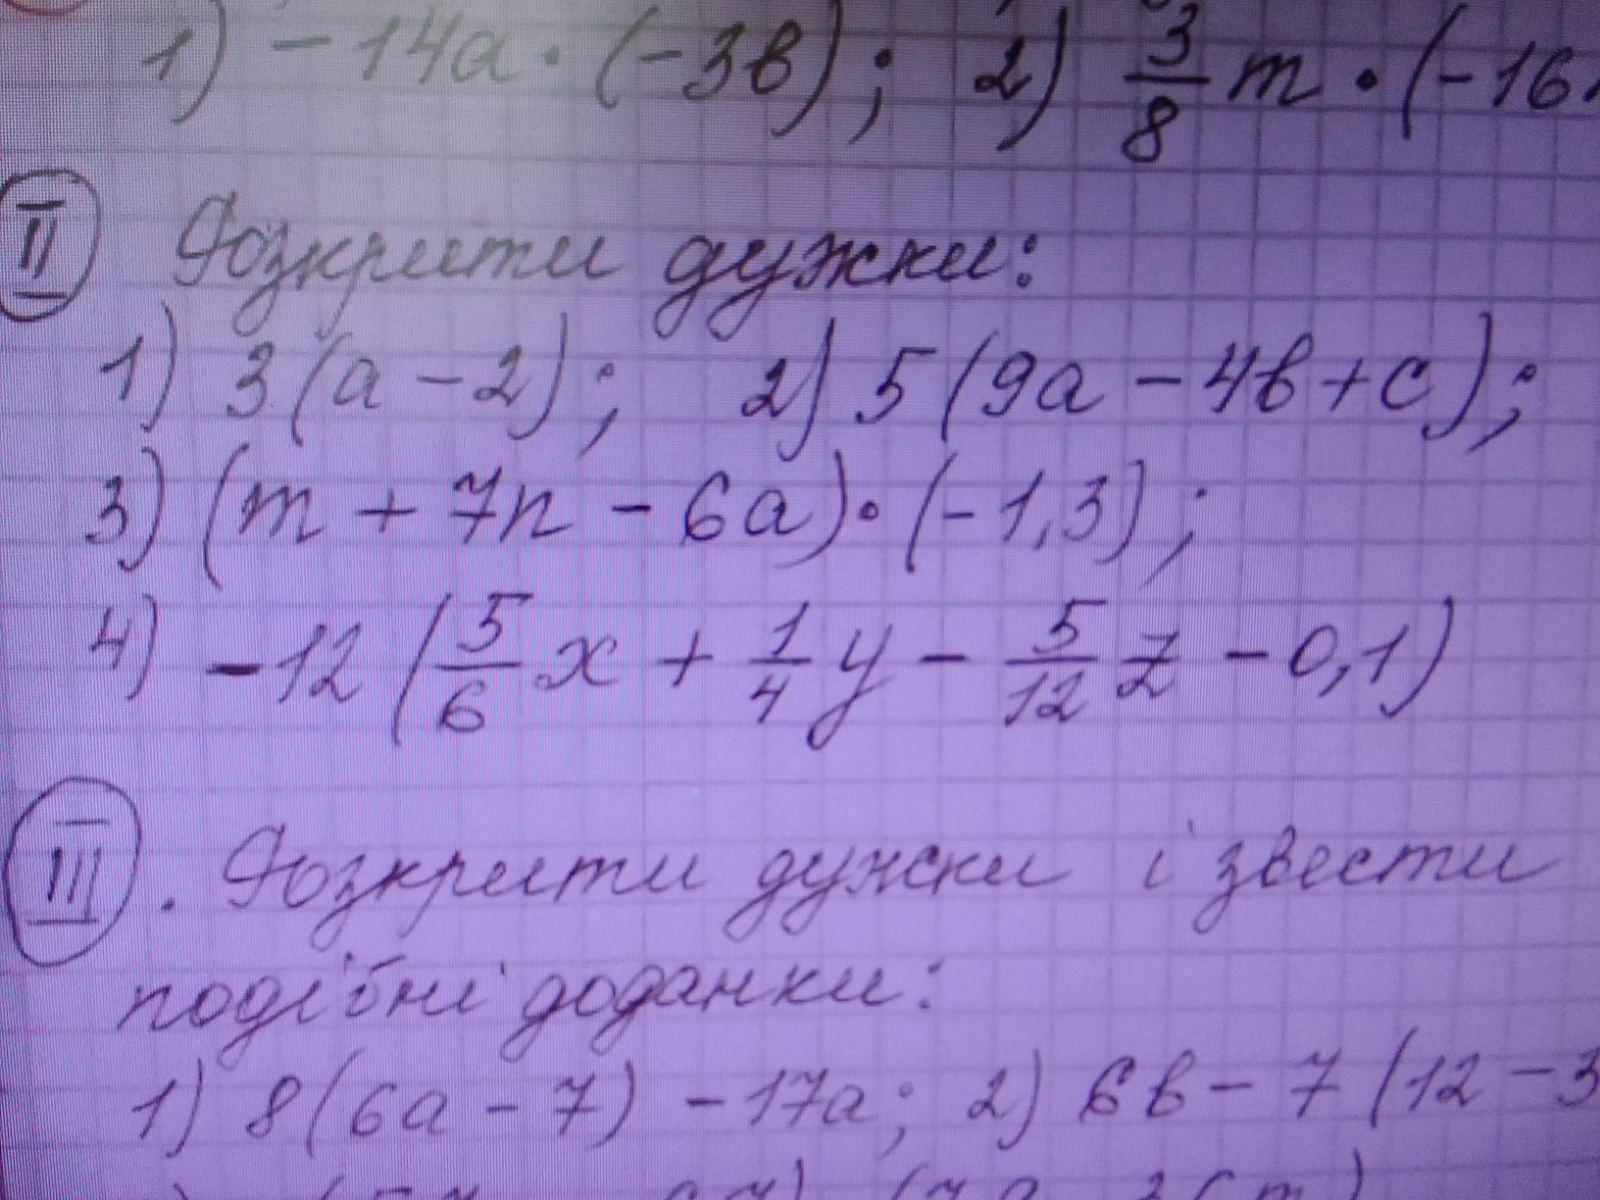 1) -14a · (-3b); 2) 3/8 m · (-16
II Розкрити дужки:
1) 3(a - 2); 2) 5(9a - 4b + c);
3) (m + 7n - 6a) · (-1,3);
4) -12(5/6 x + 1/4 y - 5/12 z - 0,1)
III. Розкрити дужки і звести
подібні доданки:
1) 8(6a - 7) - 17a; 2) 6b - 7(12 - 3